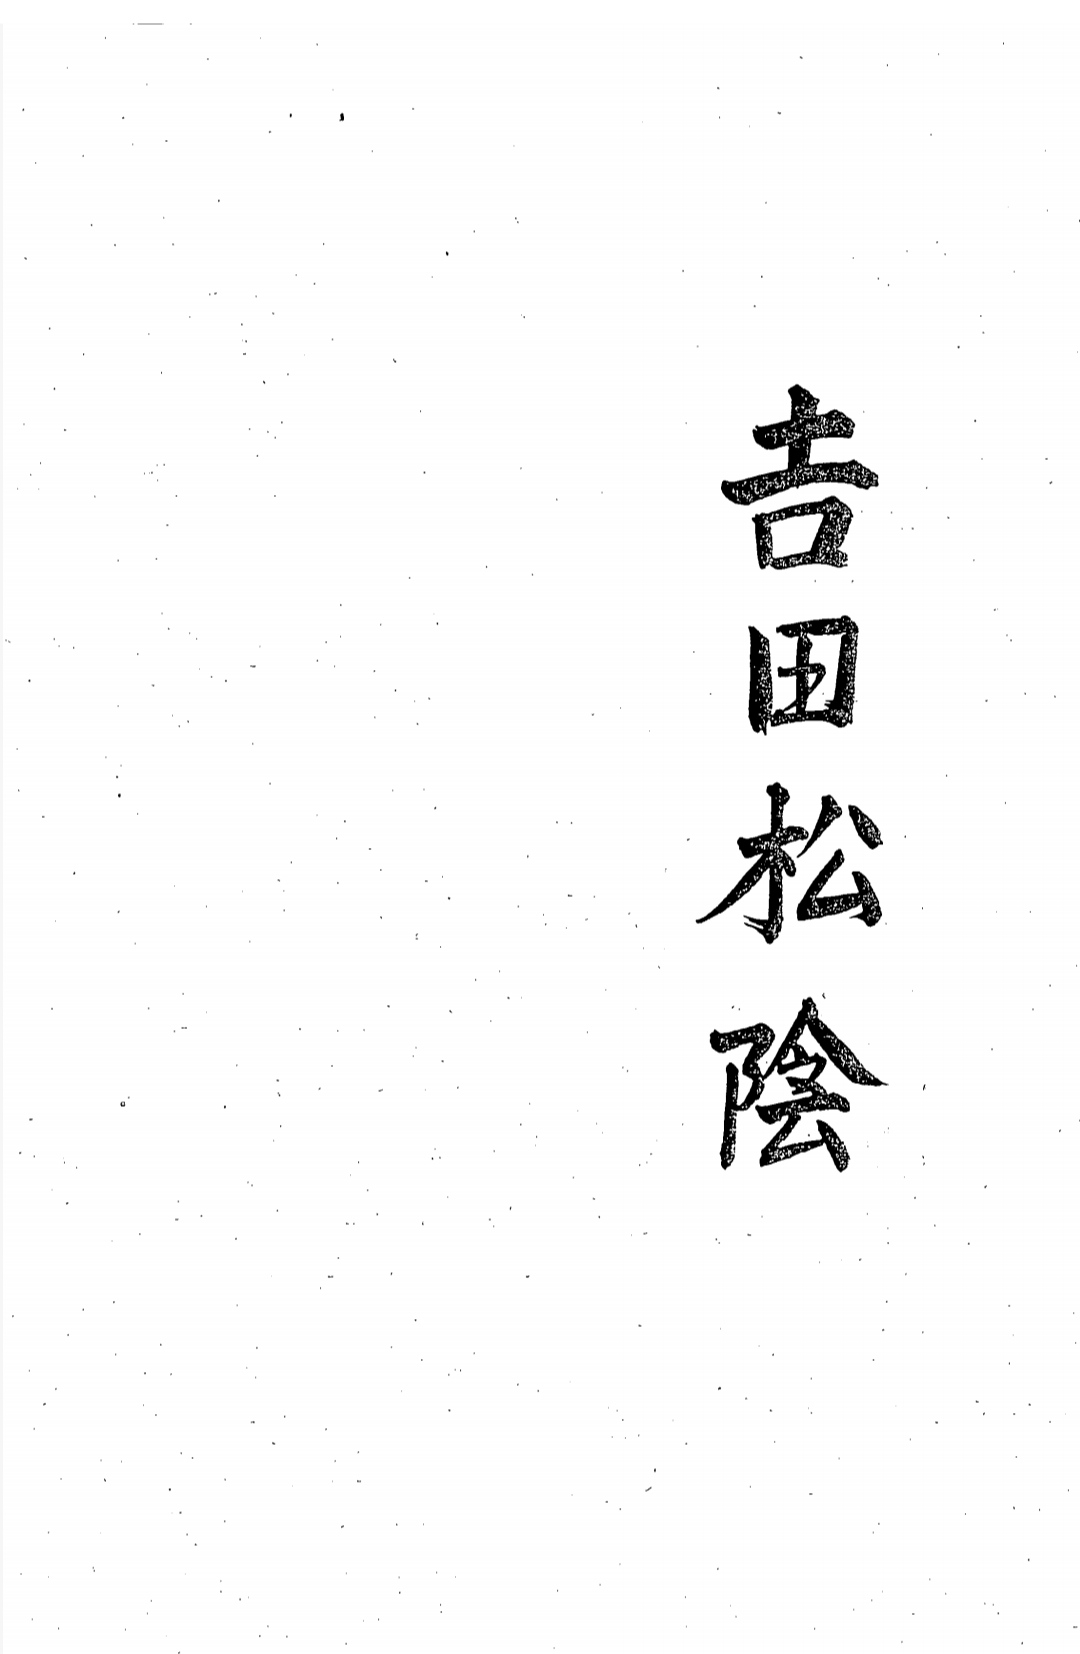 吉田松陰